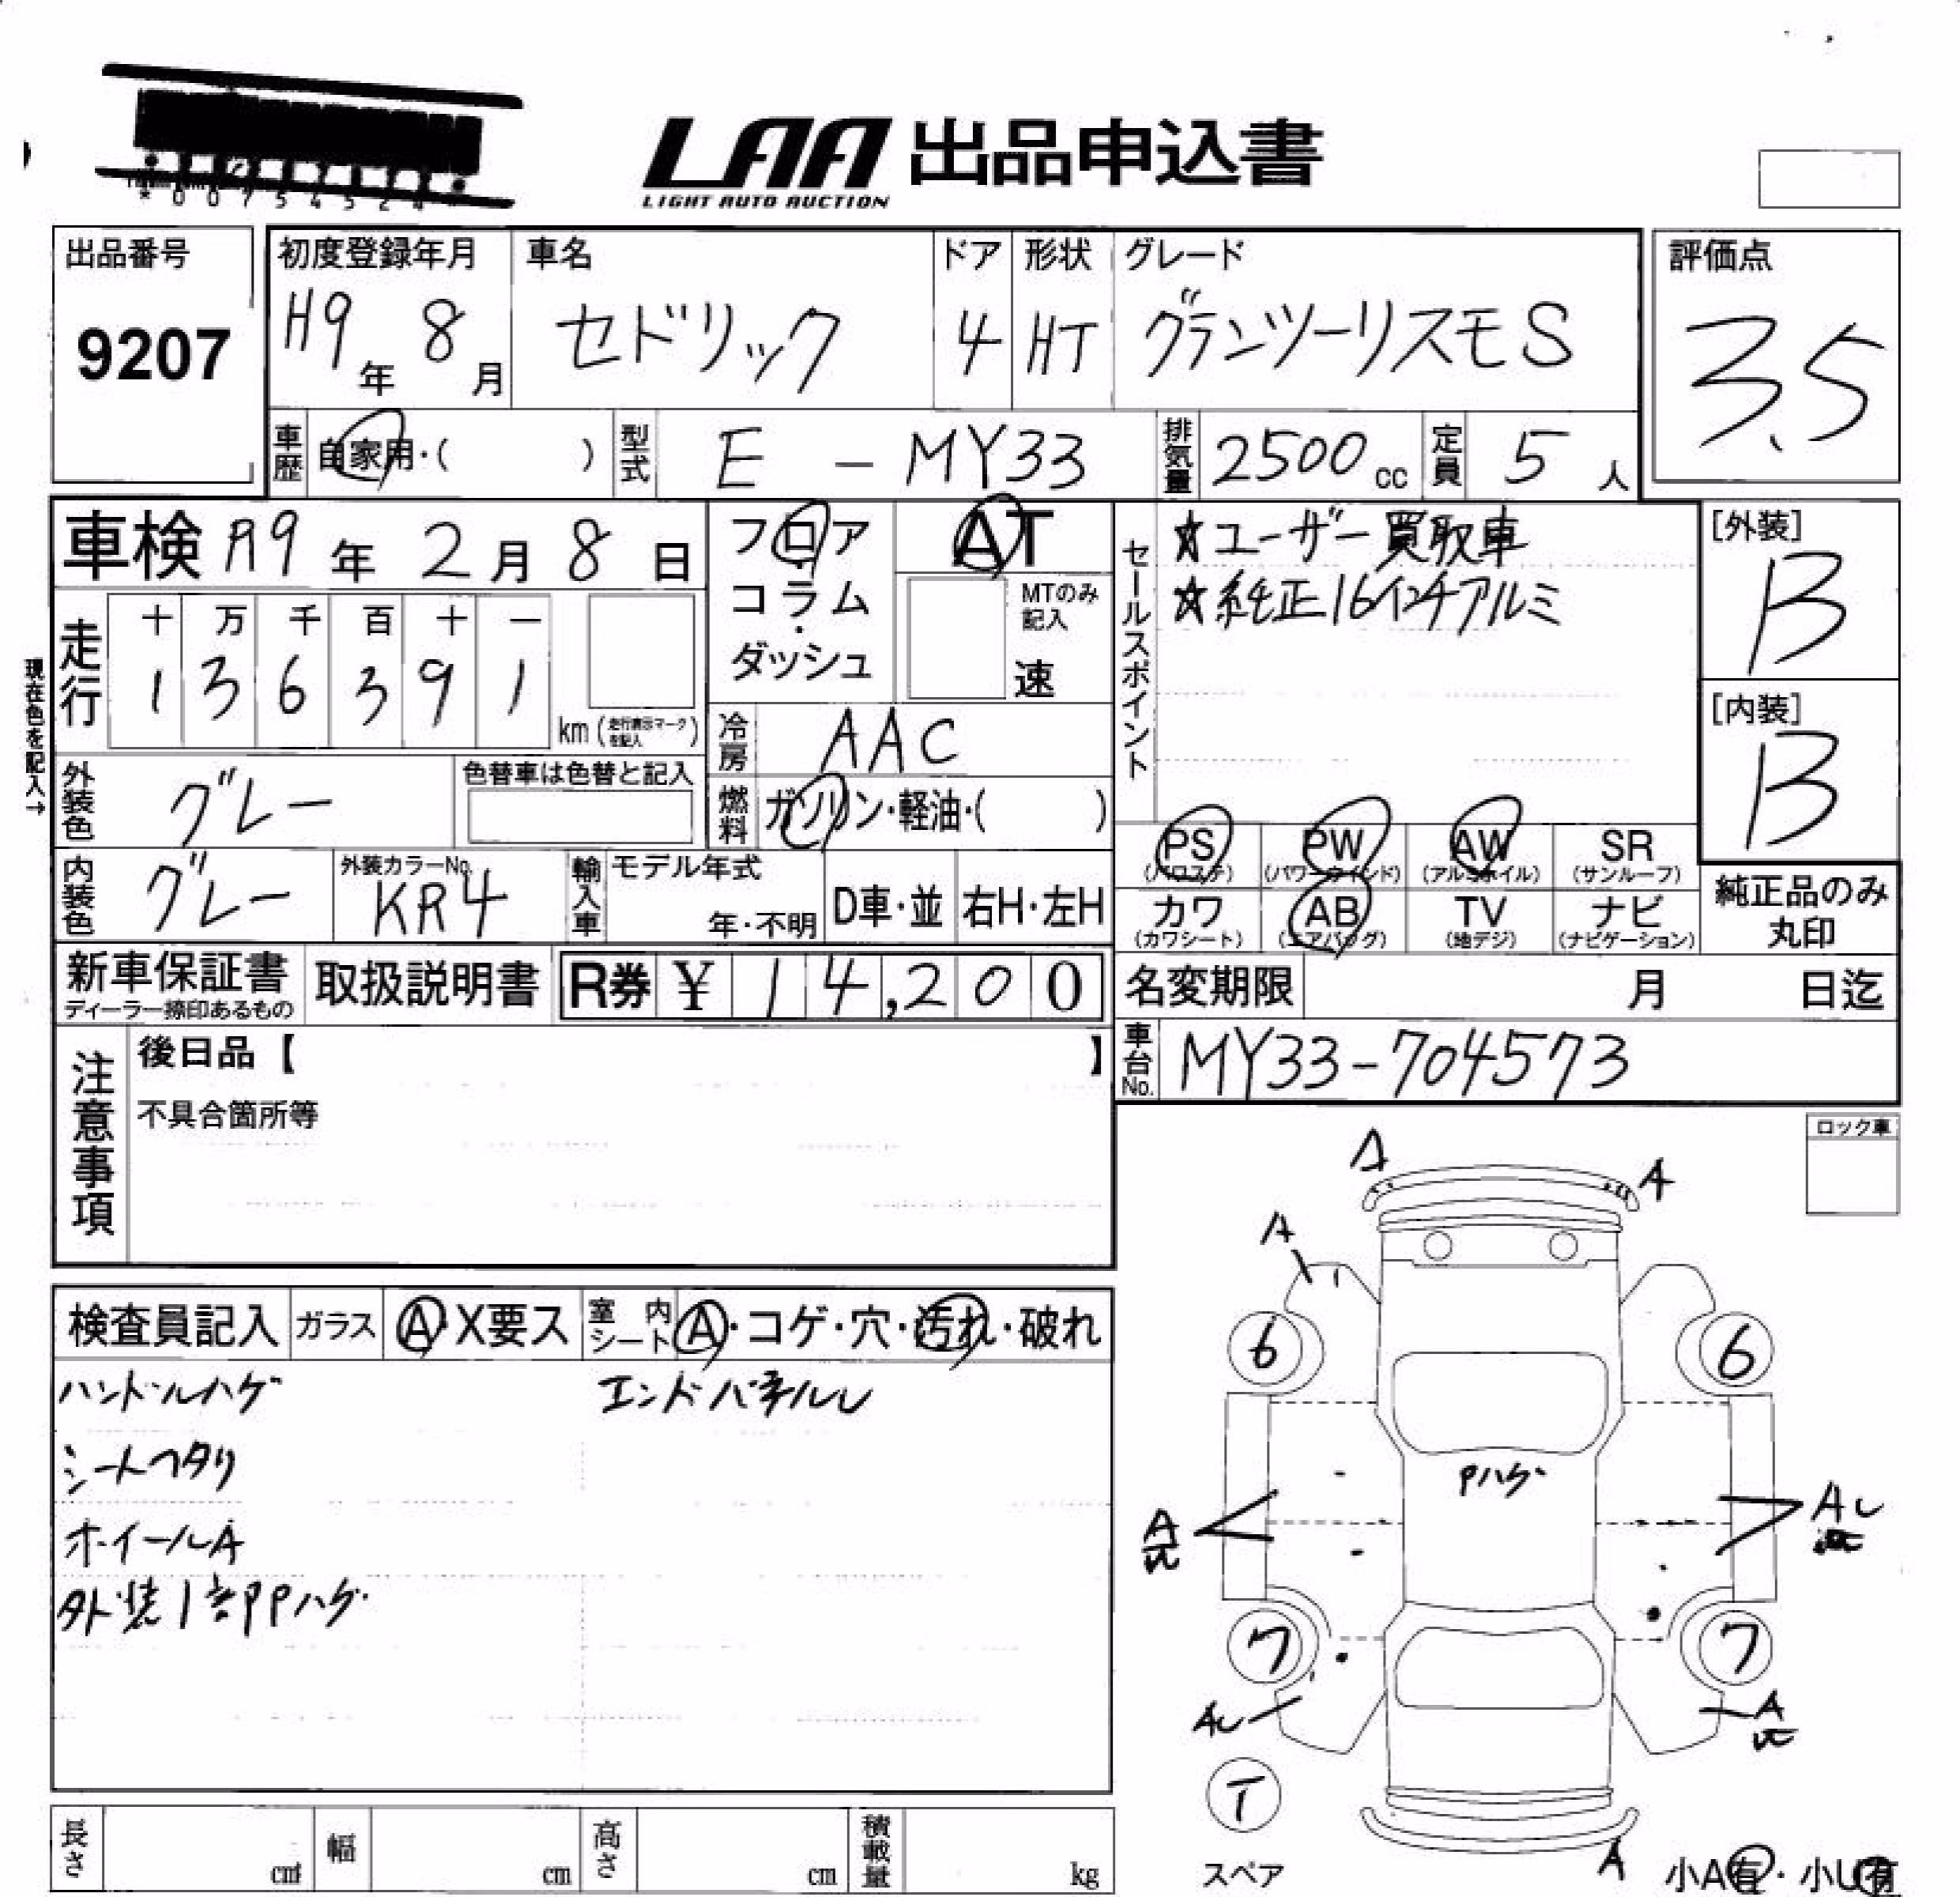 LAA 出品申込書
LIGHT AUTO AUCTION
出品番号
9207
初度登録年月
H9年 8月
車名
セドリック
ドア
4
形状
HT
グレード
グランツーリスモS
評価点
3.5
車歴 自家用・( )
型式 E - MY33
排気量 2500 cc
定員 5人
車検 R9年 2月 8日
フロア・コラム・ダッシュ
AT
MTのみ記入
速
走行
十 万 千 百 十 一
1 3 6 3 9 1
km (走行表示マークを記入)
現在色を記入→
冷房 AAC
燃料 ガソリン・軽油・( )
外装色 グレー
色替車は色替と記入
内装色 グレー
外装カラーNo. KR4
輸入車 モデル年式
年・不明
D車・並
右H・左H
セールスポイント
☆ユーザー買取車
☆純正16インチアルミ
[外装]
B
[内装]
B
PS (パワステ)
PW (パワーウインド)
AW (アルミホイル)
SR (サンルーフ)
カワ (カワシート)
AB (エアバッグ)
TV (地デジ)
ナビ (ナビゲーション)
純正品のみ
丸印
新車保証書
ディーラー捺印あるもの
取扱説明書
R券 ¥ 14,200
名変期限 月 日迄
車台No. MY33-704573
注意事項
後日品【 】
不具合箇所等
ロック車
検査員記入
ガラス A・X要ス
室内シート A・コゲ・穴・汚れ・破れ
ハンドルハゲ
エンドパネルU
シートヘタリ
ホイールA
外装1部Pハゲ
A
A
A
6
6
Pハゲ
A
AU
7
7
AU
A
T
スペア
A
小A有・小U有
長さ cm
幅 cm
高さ cm
積載量 kg